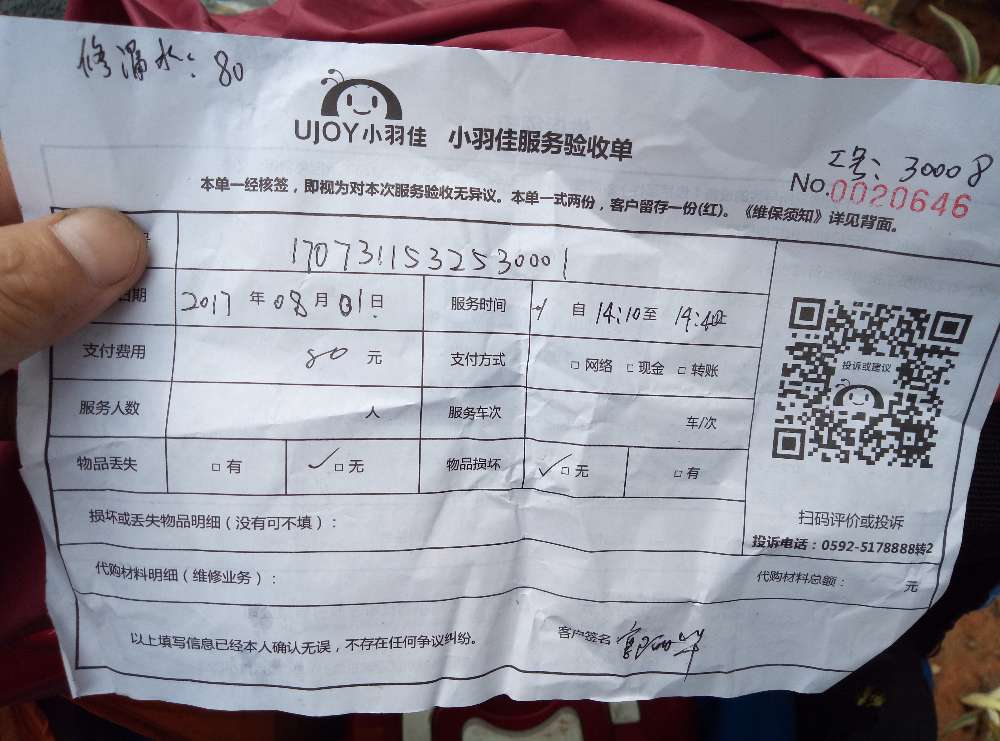 修漏水：80
UJOY小羽佳 小羽佳服务验收单
工号：30008
No.0020646
本单一经核签，即视为对本次服务验收无异议。本单一式两份，客户留存一份(红)。《维保须知》详见背面。
1707311532530001
日期 2017年08月01日 服务时间 自14:10至14:40止
支付费用 80元 支付方式 □网络 □现金 □转账
服务人数 人 服务车次 车/次
物品丢失 □有 ✓□无 物品损坏 ✓□无 □有
投诉或建议
扫码评价或投诉
投诉电话：0592-5178888转2
损坏或丢失物品明细（没有可不填）：
代购材料明细（维修业务）： 代购材料总额： 元
以上填写信息已经本人确认无误，不存在任何争议纠纷。 客户签名